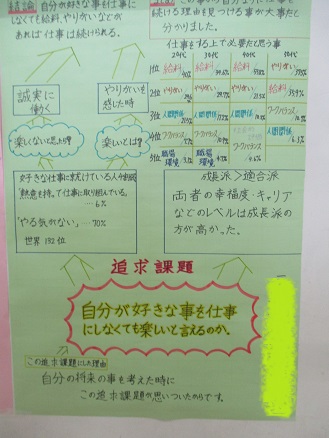 結論 自分が好きな事を仕事に
しなくても給料、やりがいなどの
あれば仕事は続けられる。
続ける理由を見つける事が大事だと
分かりました。
仕事をする上で必要だと思う事
20代 30代 40代
1位 給料 給料 給料 やりがい
2位 やりがい やりがい やりがい 給料
3位 人間関係 人間関係 人間関係 ワークバランス
4位 ワークバランス ワークバランス 人間関係
5位 職場環境 職場環境
誠実に
働く
やりがいを
感じた時
楽しくないと思う時
楽しいとは?
好きな仕事に就いている人の割合
"熱意を持って仕事に取り組んでいる。
…6%
"やる気がない"…70%
世界 132位
成長派>適合派
両者の幸福度・キャリア
などのレベルは成長派の
方が高かった。
追求課題
自分が好きな事を仕事
にしなくても楽しいと言えるのか。
この追求課題にした理由
自分の将来の事を考えた時に
この追求課題が思いついたからです。